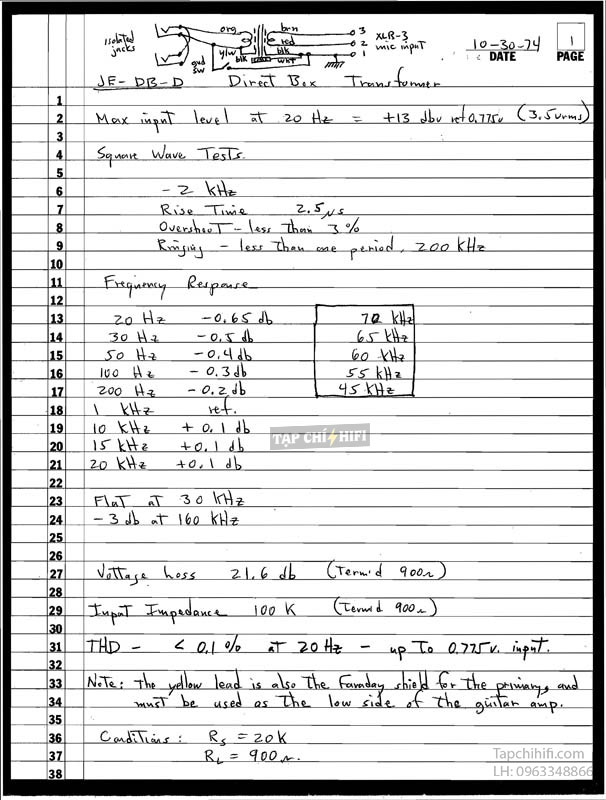 isolated jacks
org
ylw
gnd sw
brn
red
blk
blk
wht
3
2
1
XLR-3
mic input
10-30-74
DATE
1
PAGE
JE-DB-D Direct Box Transformer
1
2 Max input level at 20 Hz = +13 dbv ref 0.775v (3.5vrms)
3
4 Square Wave Tests
5
6 - 2 kHz
7 Rise Time 2.5μs
8 Overshoot - less than 3%
9 Ringing - less than one period, 200 kHz
10
11 Frequency Response
12
13 20 Hz -0.65 db 72 kHz
14 30 Hz -0.5 db 65 kHz
15 50 Hz -0.4 db 60 kHz
16 100 Hz -0.3 db 55 kHz
17 200 Hz -0.2 db 45 kHz
18 1 kHz ref.
19 10 kHz +0.1 db
20 15 kHz +0.1 db
21 20 kHz +0.1 db
TẠP CHÍ HIFI
22
23 Flat at 30 kHz
24 -3 db at 160 kHz
25
26
27 Voltage Loss 21.6 db (Term'd 900Ω)
28
29 Input Impedance 100 K (Term'd 900Ω)
30
31 THD - < 0.1% at 20 Hz - up to 0.775v. input.
32
33 Note: The yellow lead is also the Faraday shield for the primary, and
34 must be used as the low side of the guitar amp.
35
36 Conditions: Rs = 20K
37 RL = 900Ω.
38
Tapchihifi.com
LH: 0963348866